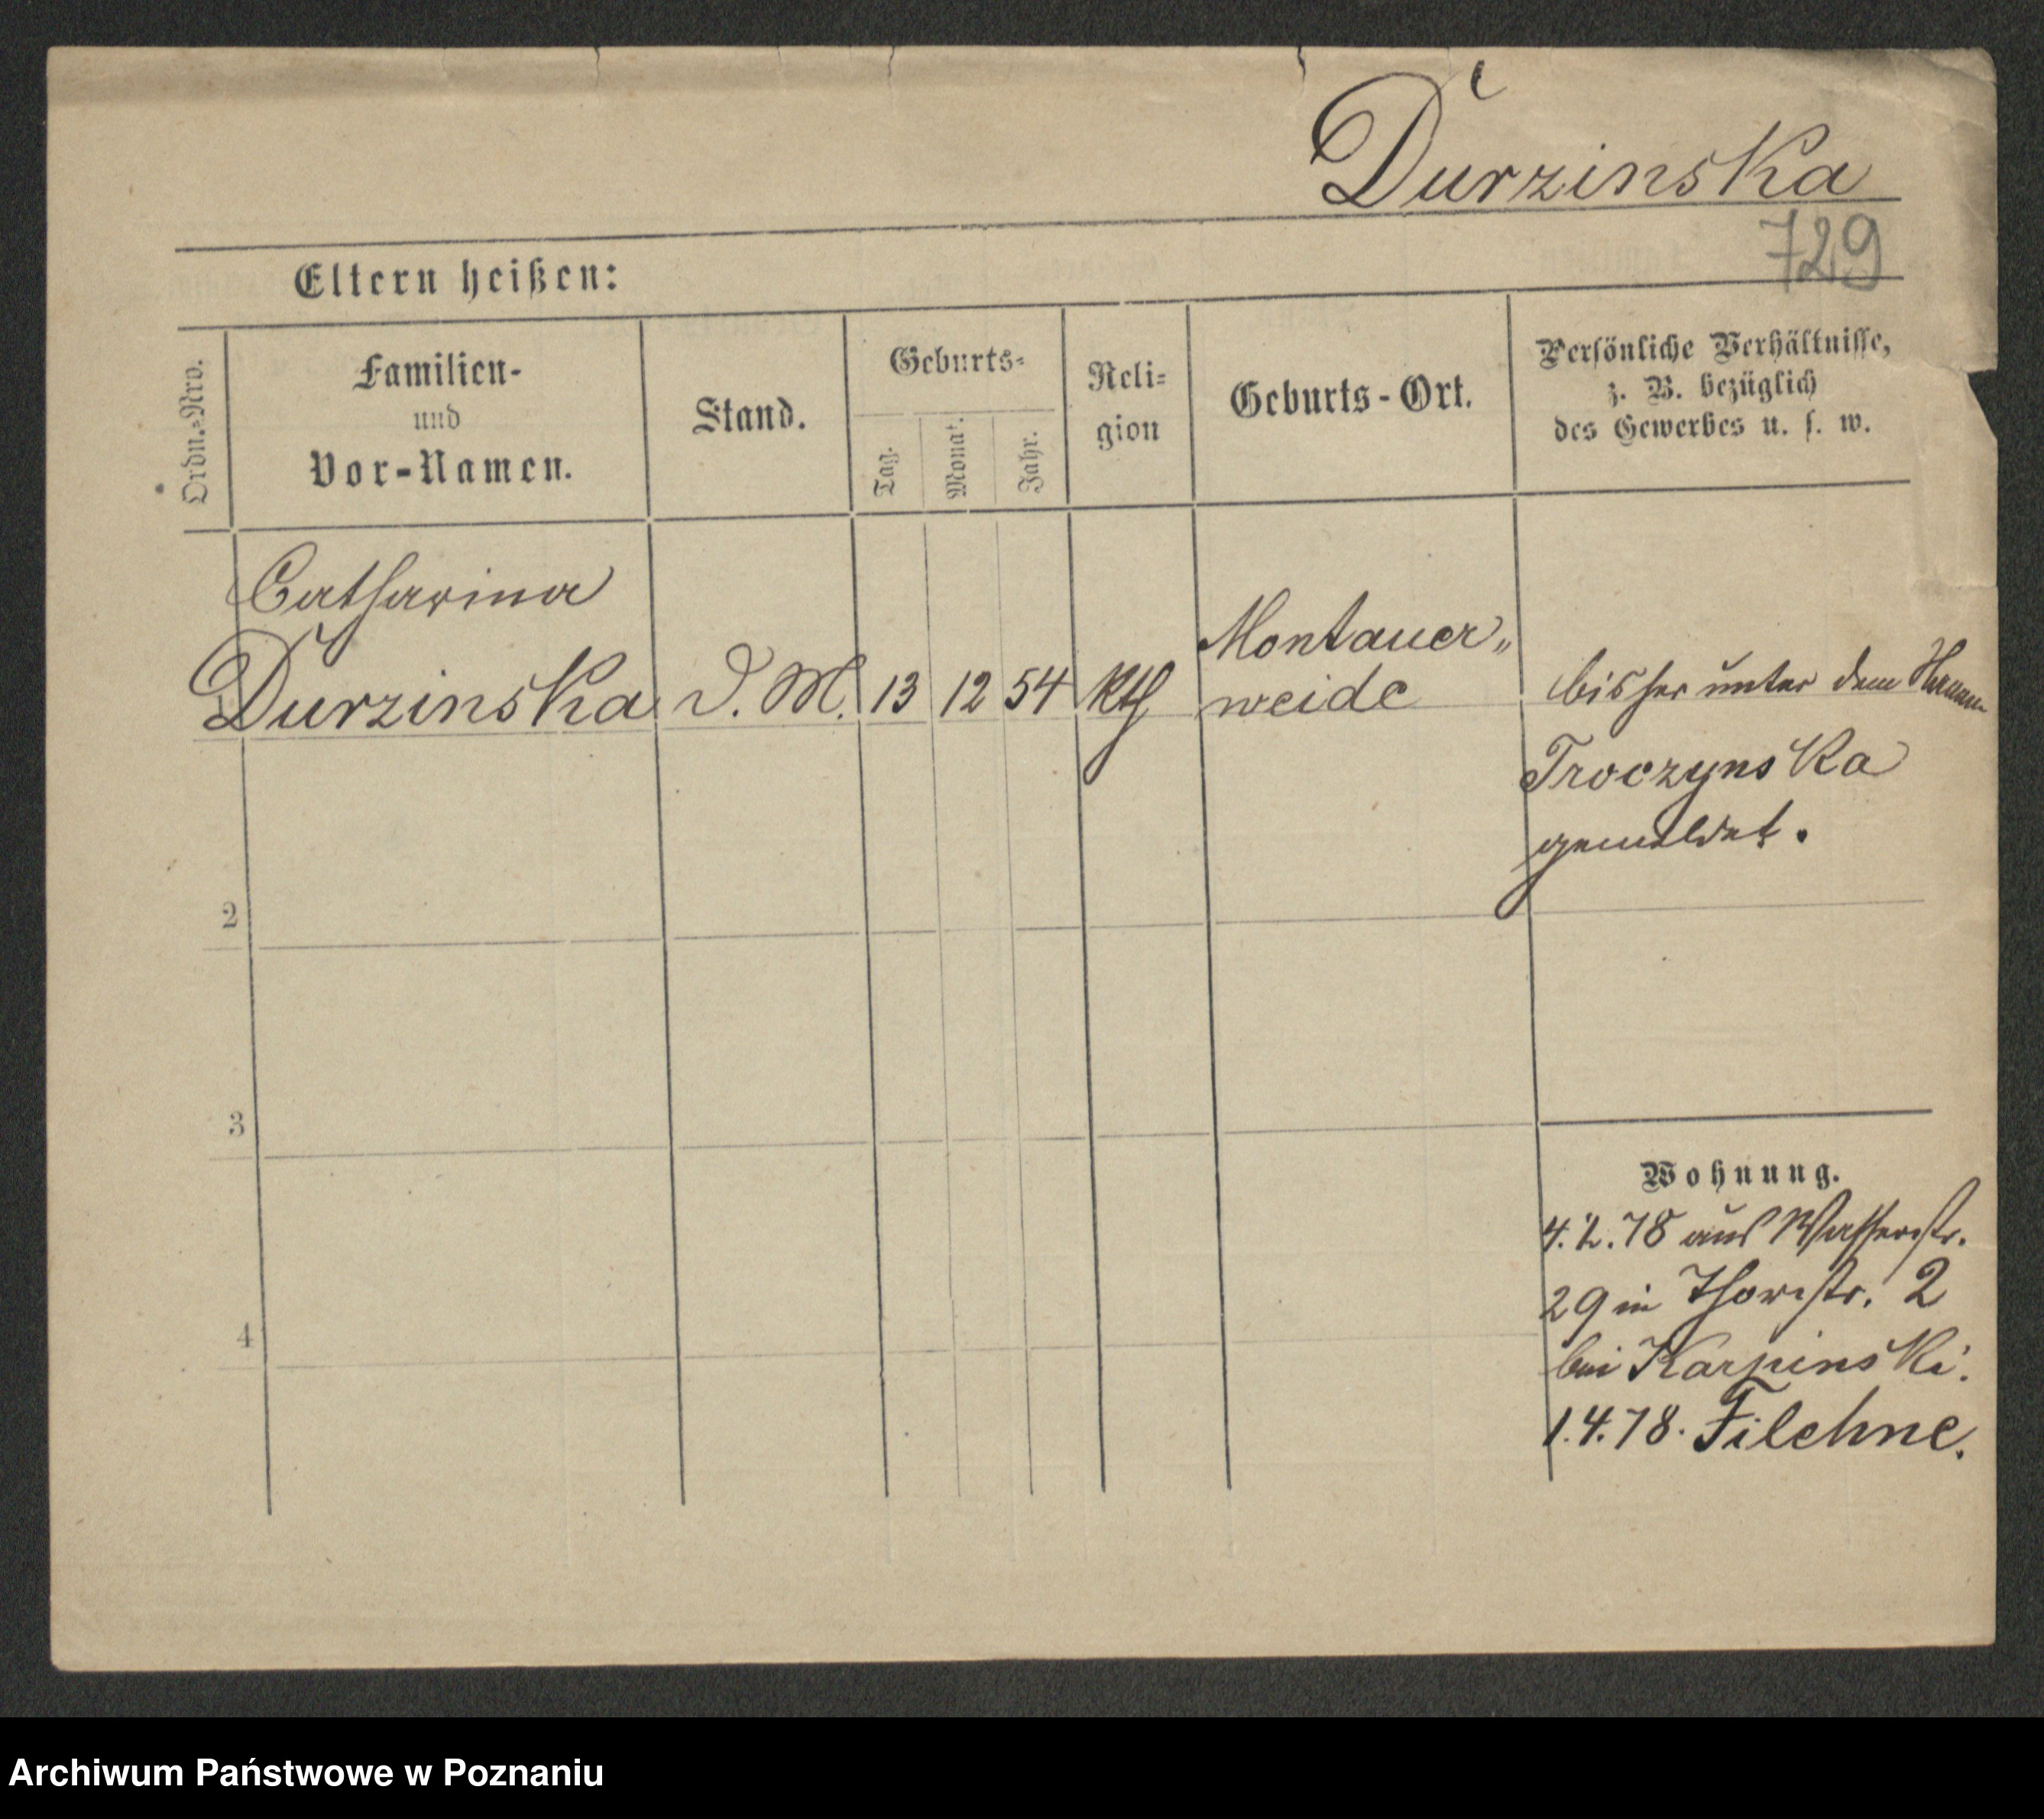 Durzinska
729
Eltern heißen:
Ordn.-Nro.
Familien-
und
Vor-Namen.
Stand.
Geburts-
Tag.
Monat.
Jahr.
Reli-
gion
Geburts-Ort.
Persönliche Verhältnisse,
z. B. bezüglich
des Gewerbes u. s. w.
Catharina
Durzinska
D. M.
13
12
54
Kth
Montauer„
weide
bisher unter dem Namen
Troczynska
gemeldet.
2
3
4
Wohnung.
4.2.78 aus Wasserstr.
29 in Thorstr. 2
bei Karpinski.
1.4.78. Filehne.
Archiwum Państwowe w Poznaniu